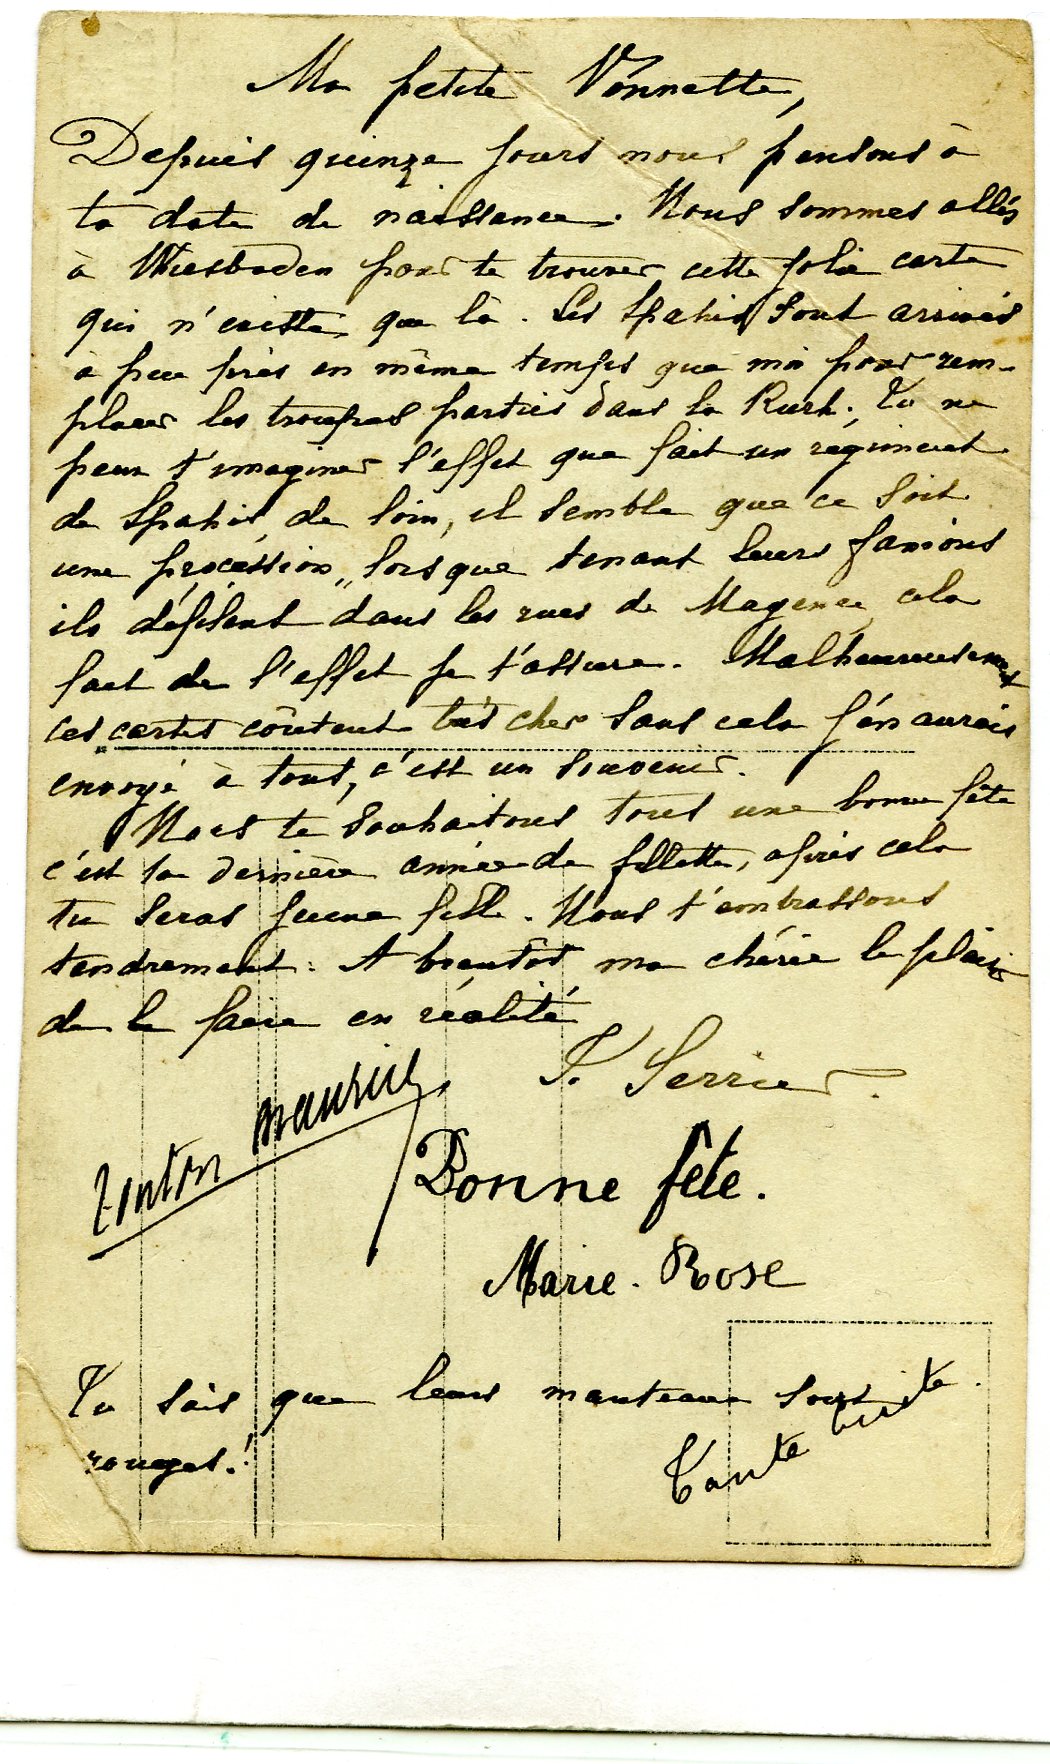 Ma petite Vonnette,
Depuis quinze jours nous pensons à
ta date de naissance. Nous sommes allés
à Wiesbaden pour te trouver cette jolie carte
qui n'existe que là. Les Spahis sont arrivés
à peu près en même temps que moi pour rem-
placer les troupes parties dans la Ruhr. Tu ne
peux t'imaginer l'effet que fait un régiment
de Spahis, de loin, il semble que ce soit
une procession, lorsque tenant leurs fanions
ils défilent dans les rues de Mayence cela
fait de l'effet je t'assure. Malheureusement
ces cartes coûtent très cher sans cela j'en aurais
envoyé à tous, c'est un souvenir.
Nous te souhaitons tous une bonne fête
c'est ta dernière année de fillette, après cela
tu seras jeune fille. Nous t'embrassons
tendrement. A bientôt ma chérie le plaisir
de le faire en réalité
T. Serrier.
Tonton Maurice
Bonne fête.
Marie-Rose
Tu sais que leurs manteaux sont
rouges!
Tante